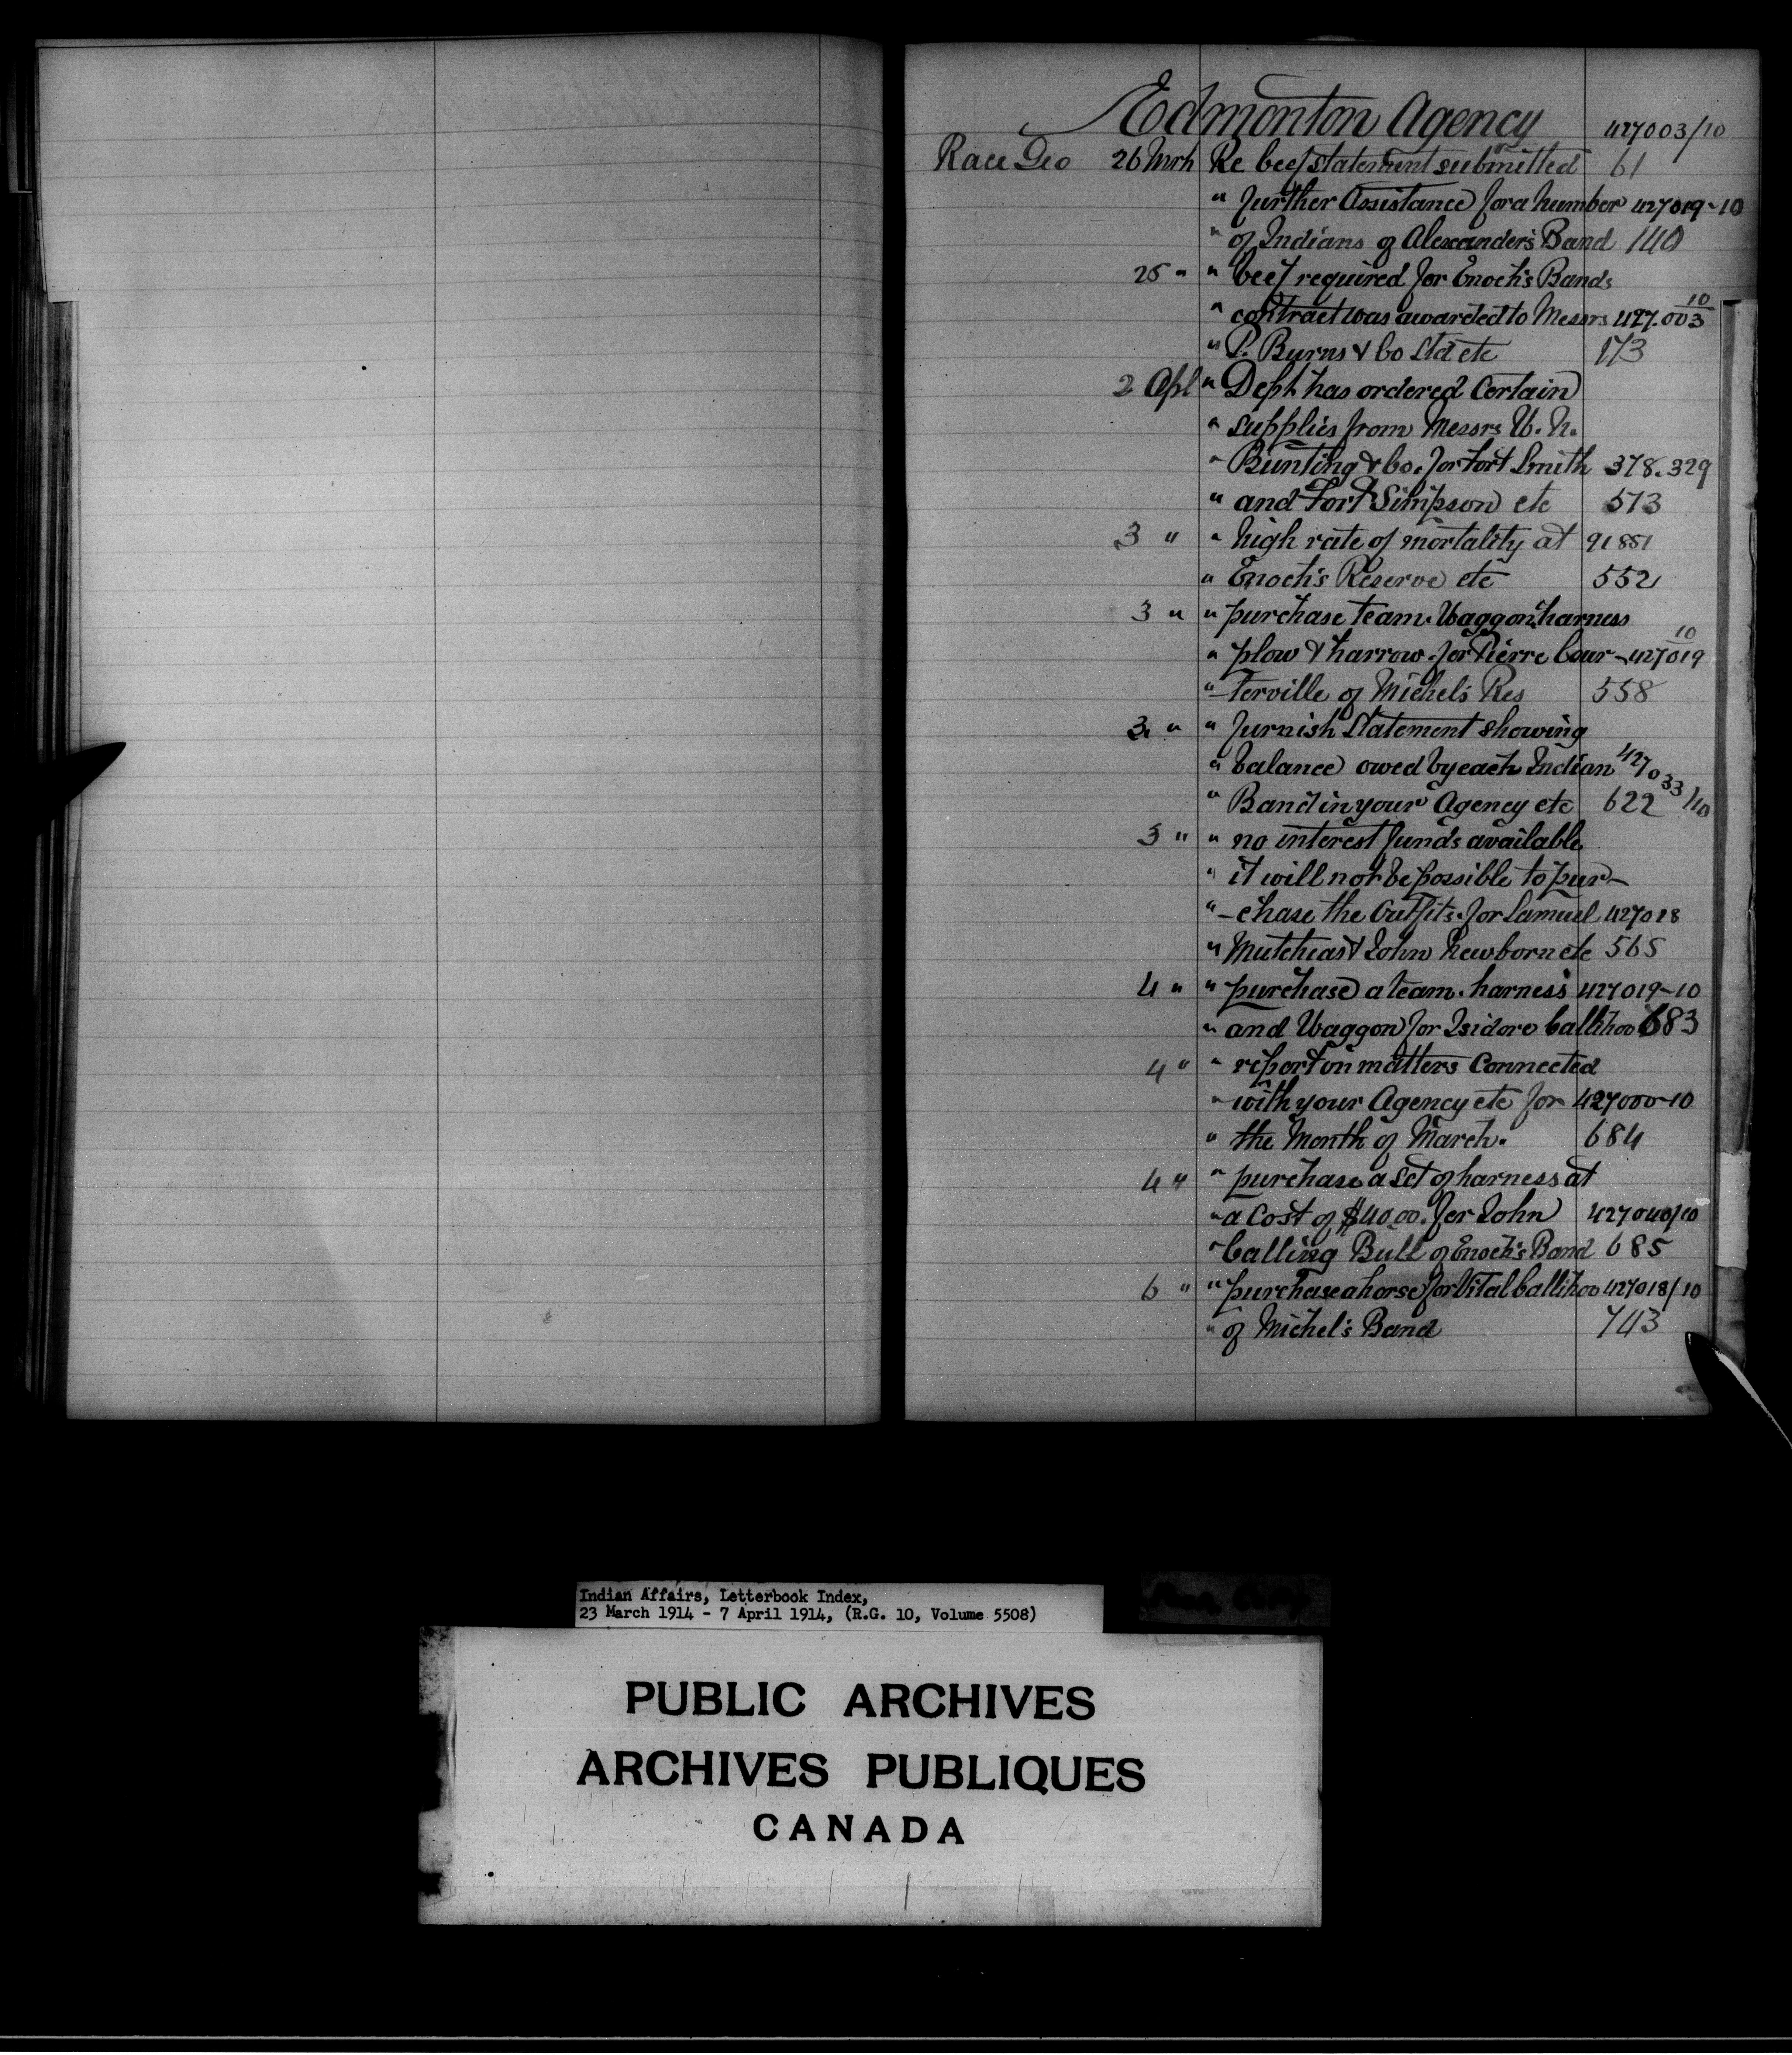 Edmonton Agency 427003/10
Race Geo 26 Mrh Re beef statement submitted 61
" further Assistance for a number 427019-10
" of Indians of Alexander's Band 140
25 " " beef required for Enoch's Bands
" contract was awarded to Messrs 427.003 10
" P. Burns & Co Ltd etc 173
2 Apl " Dept has ordered Certain
" supplies from Messrs W. H.
" Bunting & Co. for Fort Smith 378.329
" and Fort Simpson etc 573
3 " " high rate of mortality at 91851
" Enoch's Reserve etc 552
3 " " purchase team. Waggon, harness
" plow & harrow. for Pierre Cour- 427019 10
" -terville of Michel's Res 558
3 " " furnish Statement showing
" balance owed by each Indian 427033/10
" Band in your Agency etc 622
3 " " no interest funds available
" it will not be possible to pur-
" -chase the Outfits. for Samuel 427018
" Mutchias & John Newborn etc 565
4 " " purchase a team. harness 427019-10
" and Waggon for Isidore Callihoo 683
4 " " report on matters Connected
" with your Agency etc for 427000-10
" the Month of March. 684
4 " " purchase a Set of harness at
" a Cost of $40.00. for John 427040/10
" Calling Bull of Enoch's Band 685
6 " " purchase a horse for Vital Callihoo 427018/10
" of Michel's Band 743
Indian Affairs, Letterbook Index,
23 March 1914 - 7 April 1914, (R.G. 10, Volume 5508)
PUBLIC ARCHIVES
ARCHIVES PUBLIQUES
CANADA